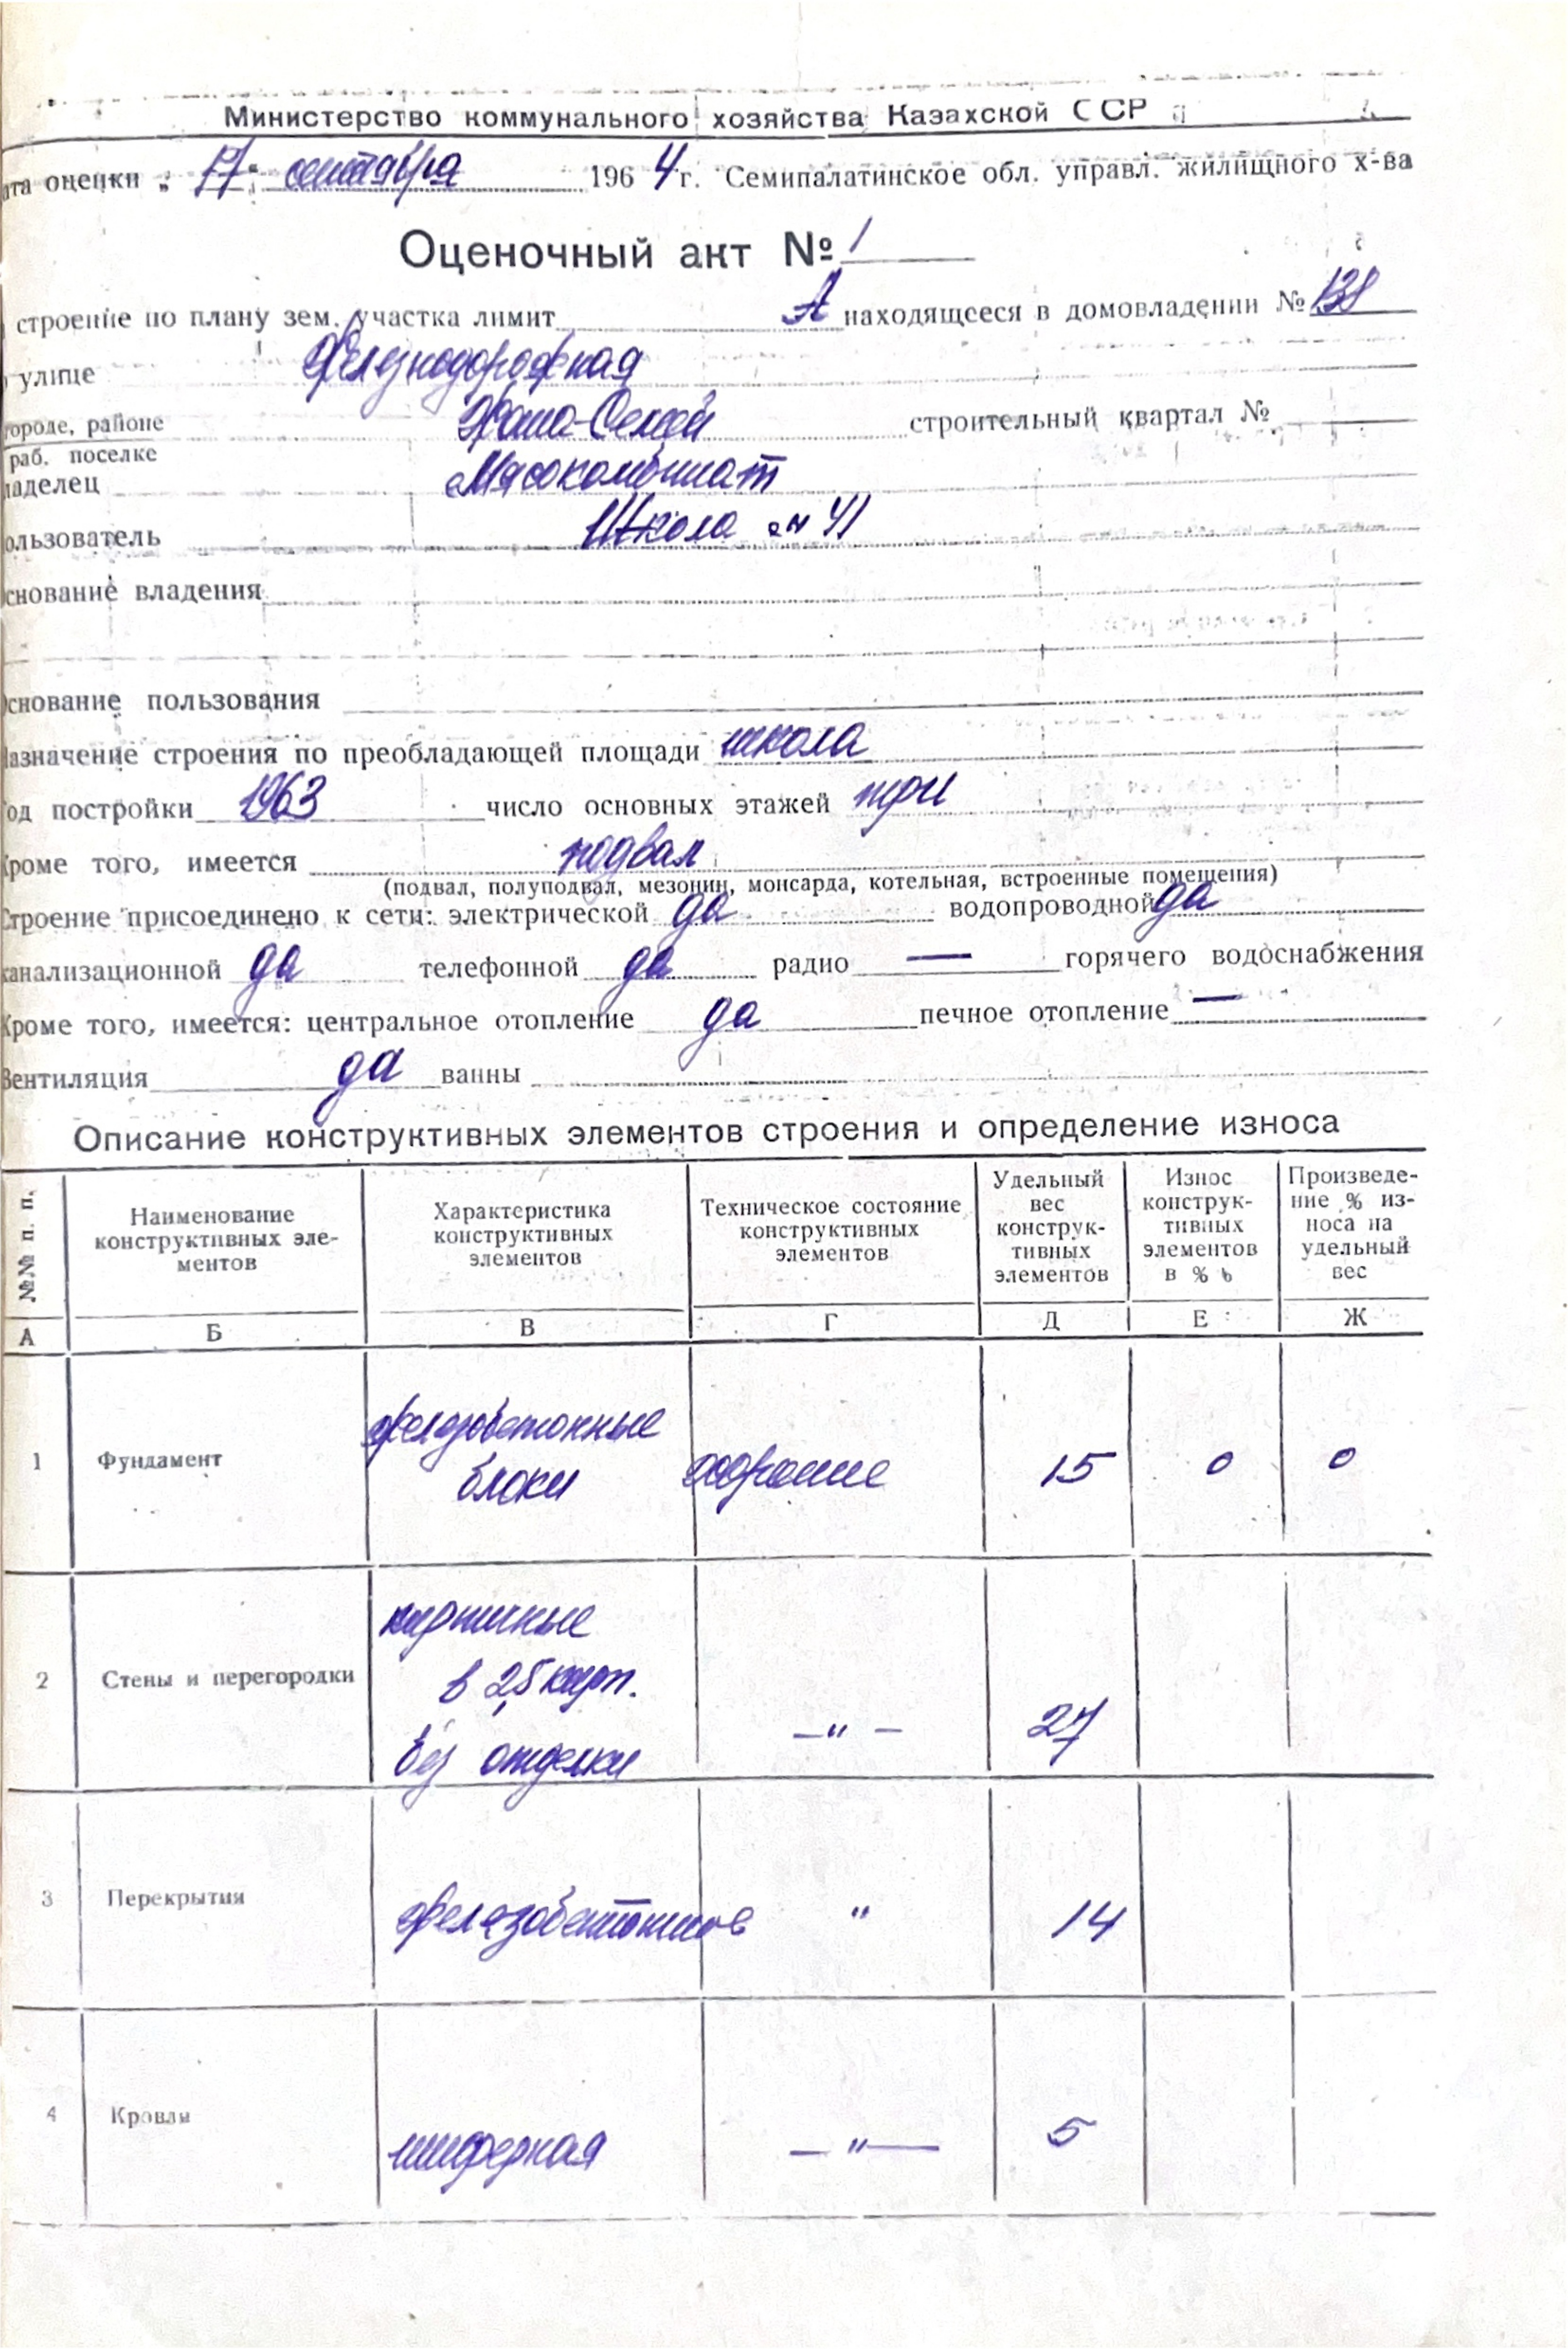 Министерство коммунального хозяйства Казахской ССР
ата оценки „17" сентября 1964 г. Семипалатинское обл. управл. жилищного х-ва
Оценочный акт № 1
строение по плану зем. участка лимит А находящееся в домовладении № 138
улице Железнодорожная
городе, районе Жана-Семей строительный квартал №
раб. поселке
ладелец Мясокомбинат
ользователь Школа № 41
снование владения
снование пользования
азначение строения по преобладающей площади школа
од постройки 1963 число основных этажей три
Кроме того, имеется подвал
(подвал, полуподвал, мезонин, монсарда, котельная, встроенные помещения)
Строение присоединено к сети: электрической да водопроводной да
канализационной да телефонной да радио — горячего водоснабжения
Кроме того, имеется: центральное отопление да печное отопление —
Вентиляция да ванны
Описание конструктивных элементов строения и определение износа
№№ п. п. Наименование конструктивных эле-ментов Характеристика конструктивных элементов Техническое состояние конструктивных элементов Удельный вес конструк-тивных элементов Износ конструк-тивных элементов в % Произведе-ние % из-носа на удельный вес
А Б В Г Д Е Ж
1 Фундамент железобетонные блоки хорошие 15 0 0
2 Стены и перегородки кирпичные в 2,5 кирп. без отделки —"— 27
3 Перекрытия железобетонные " 14
4 Кровля шиферная —"— 5